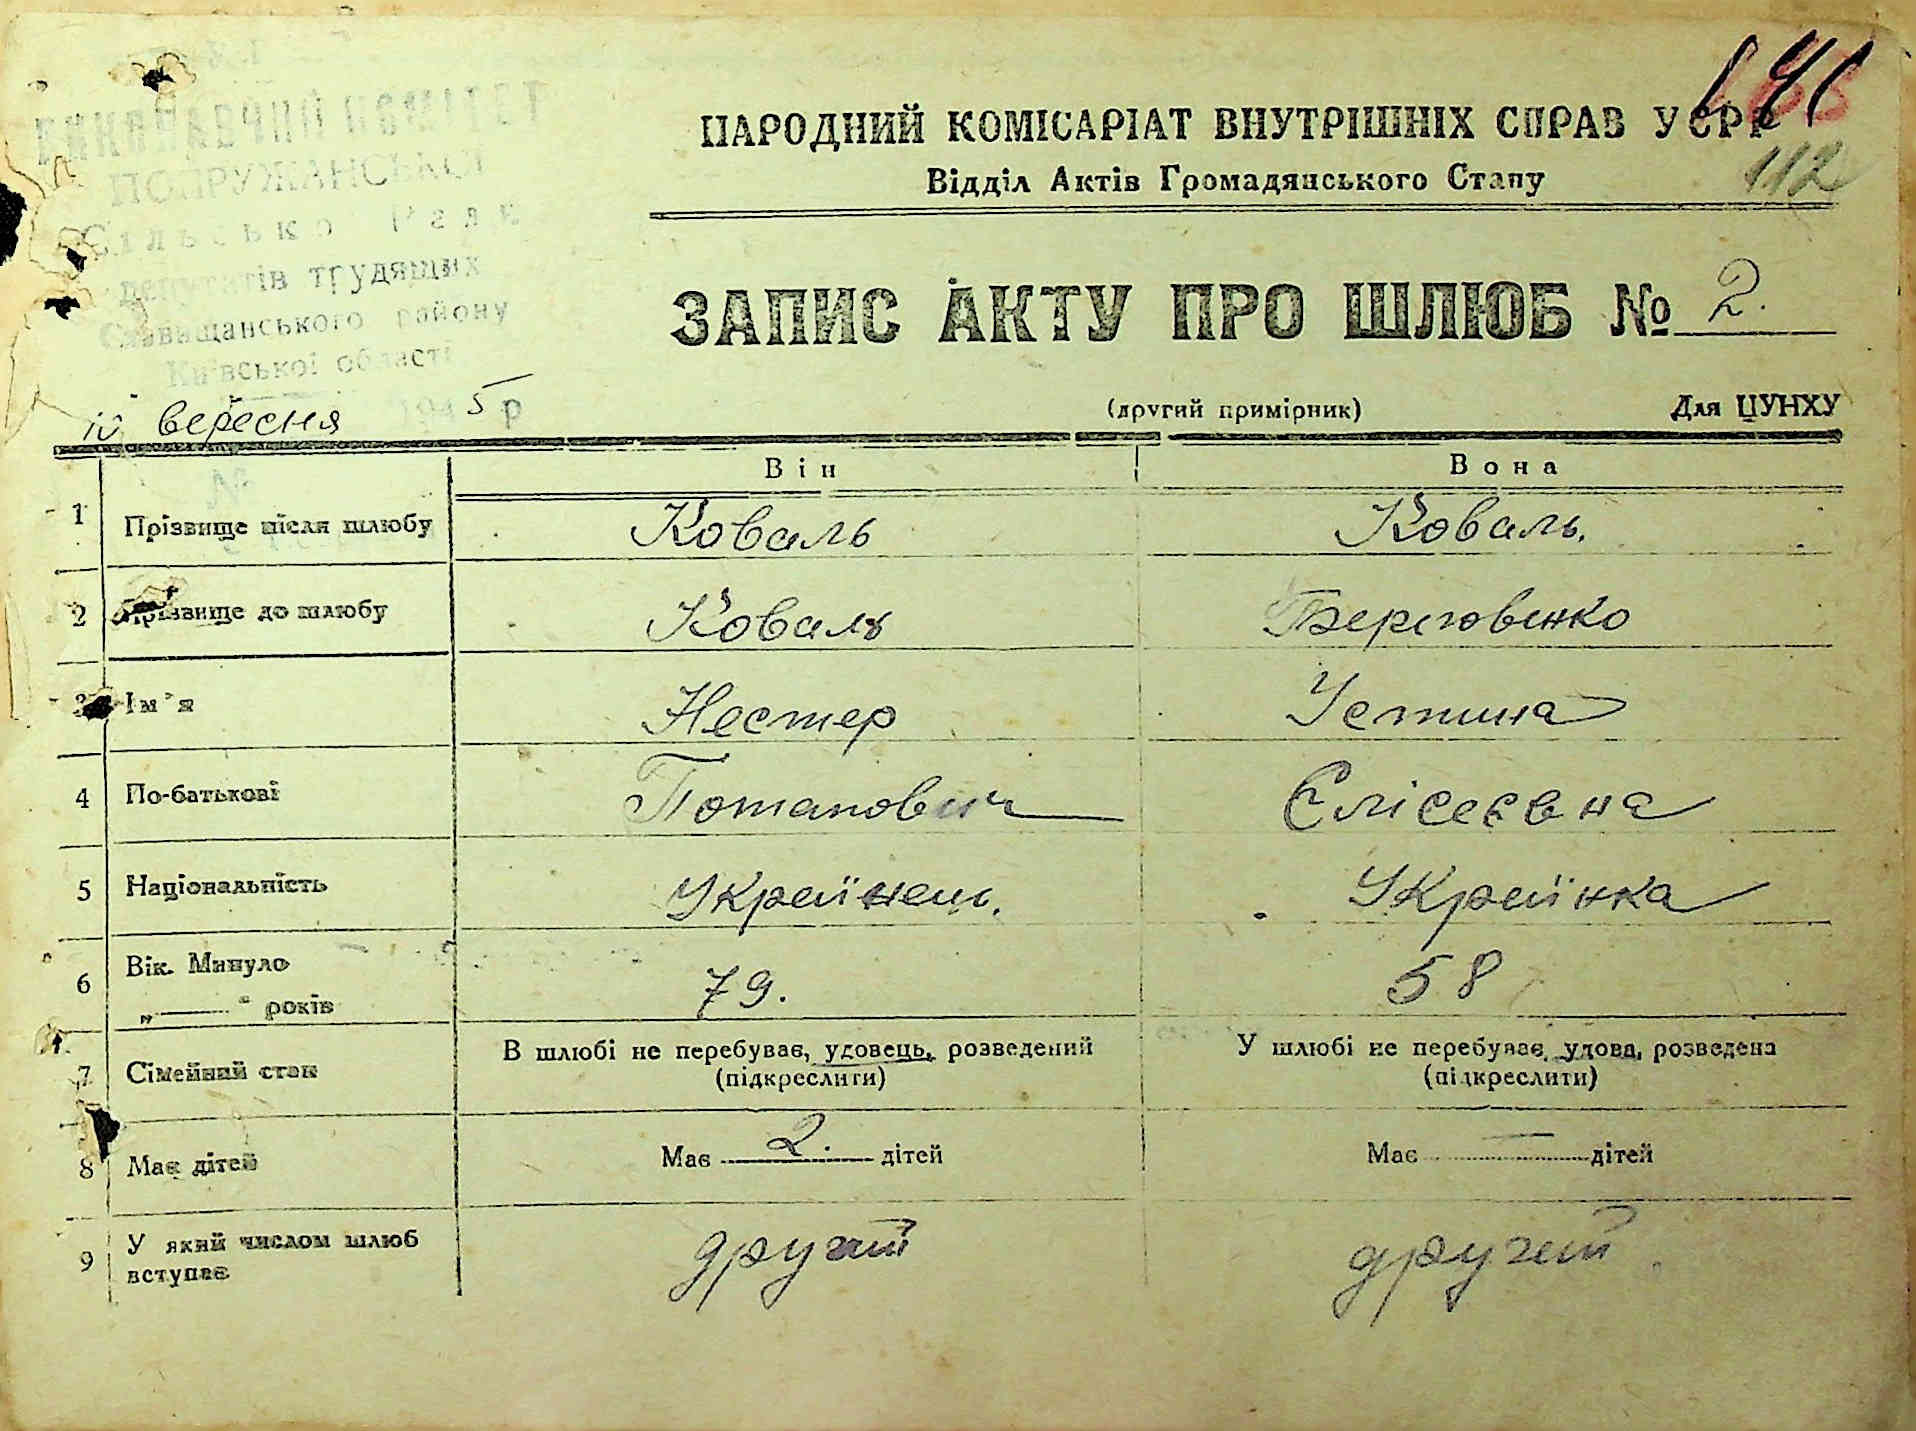 ВИКОНАВЧИЙ КОМІТЕТ
ПОПРУЖАНСЬКОЇ
Сільської Ради
депутатів трудящих
Ставищанського району
Київської області
10 вересня 1945 р
№
112
НАРОДНИЙ КОМІСАРІАТ ВНУТРІШНІХ СПРАВ УСРР
Відділ Актів Громадянського Стану
ЗАПИС АКТУ ПРО ШЛЮБ № 2.
(другий примірник) Для ЦУНХУ
Він Вона
1 Прізвище після шлюбу Коваль Коваль.
2 Прізвище до шлюбу Коваль Береговенко
3 Ім'я Нестер Устина
4 По-батькові Потапович Єлісеєвна
5 Національність Українець. Українка
6 Вік. Минуло 79. 58
„——" років
7 Сімейний стан В шлюбі не перебував, удовець, розведений У шлюбі не перебуває, удова, розведена
(підкреслити) (підкреслити)
8 Має дітей Має 2. дітей Має — дітей
9 У який числом шлюб другий другий
вступає